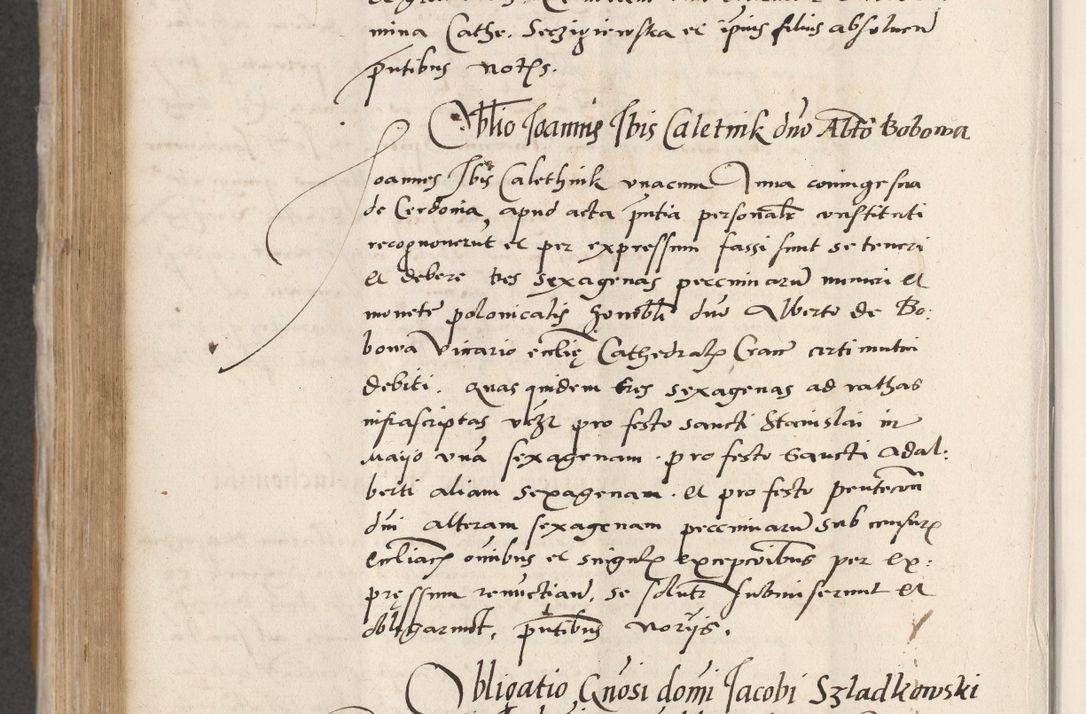 mina Cathe. Seczigiewska et ip̄ius filius absoluen̄
pn̄tibus Not̄s.
Obl̄io Joannis Jbis Caletnik dn̄o Alb̄to Bobowa
Joannes Jbis Calethnik vnacum Anna coniuge sua
de Cerdonia, apud acta pn̄tia personal̄r constituti
recognouerūt et per expressum fassi sunt se teneri
et debere tres sexagenas pecuniarū numeri et
monete polonicalis honorabli dn̄o Alberto de Bo:
bowa Vicario ecclię Cathedralis Cracō certi mutui
debiti. quas quidem tres sexagenas ad rathas
infrascriptas vcz̄ pro festo sancti Stanislai in
Maijo vna sexagenam. pro festo Sancti Adal:
berti aliam sexagenam. et pro festo pentecō
dn̄i alteram sexagenam pecuniarū sub censuris
eccl̄iacis om̄ibus et singulis exceptōibus per ex:
pręssum renūctian̄, se soluer̄ submiserunt et
obligarunt, pn̄tibus Norijs.
Obligatio Gn̄osi domi Jacobi Szladkowski